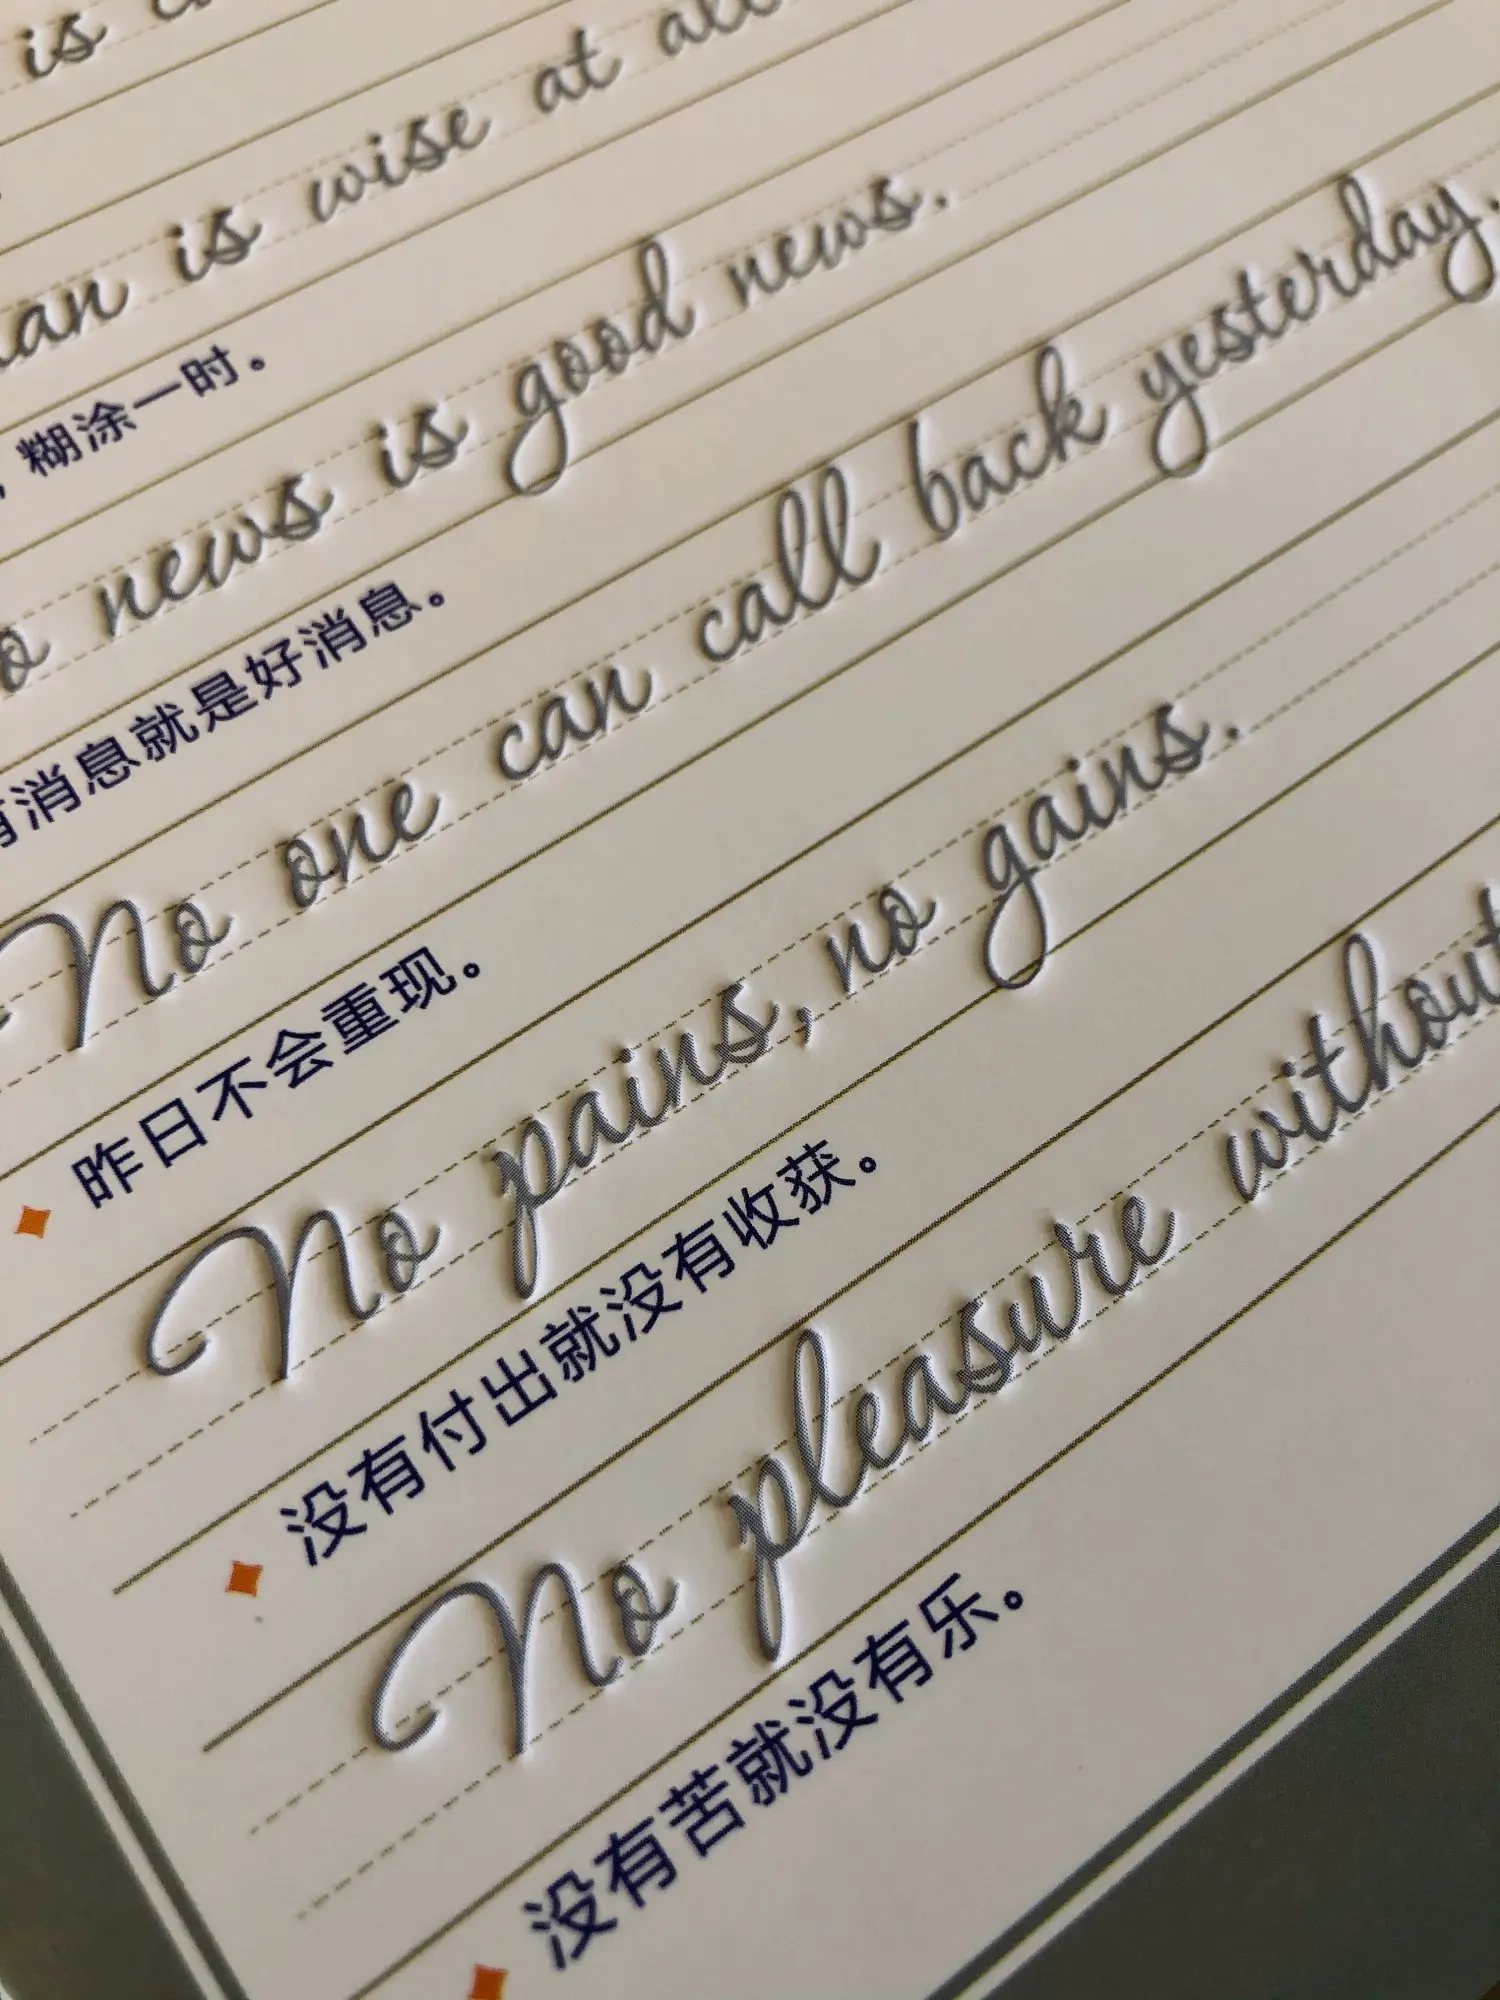 is
is wise at all
糊涂一时。
news is good news.
消息就是好消息。
No one can call back yesterday.
昨日不会重现。
No pains, no gains.
没有付出就没有收获。
No pleasure without
没有苦就没有乐。